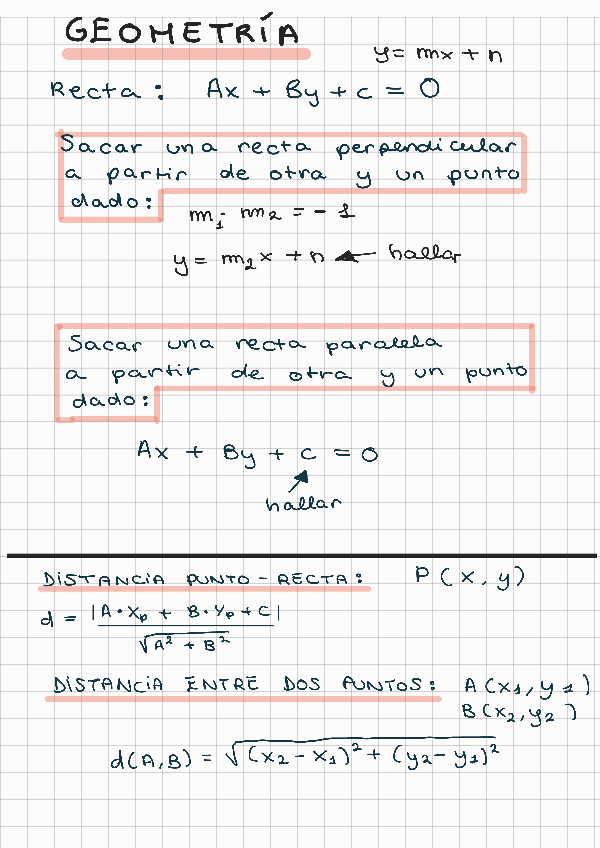 GEOMETRÍA
y = mx + n
Recta: Ax + By + c = 0
Sacar una recta perpendicular
a partir de otra y un punto
dado:
m₁· m₂ = - 1
y = m₂x + n ← hallar
Sacar una recta paralela
a partir de otra y un punto
dado:
Ax + By + c = 0
hallar
DISTANCIA PUNTO - RECTA: P (x, y)
d = |A·Xp + B·Yp + C|
√A² + B²
DISTANCIA ENTRE DOS PUNTOS: A (x₁, y₁)
B (x₂, y₂)
d(A,B) = √(x₂ - x₁)² + (y₂ - y₁)²